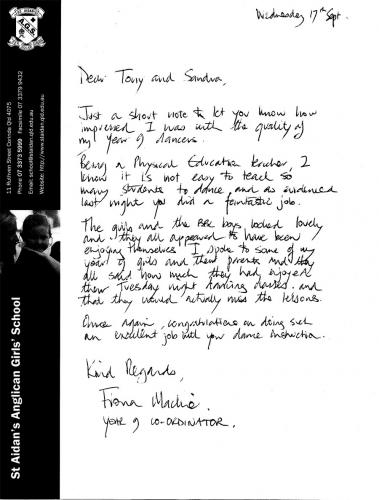 Wednesday 17th Sept.
Dear Tony and Sandra,
Just a short note to let you know how
impressed I was with the quality of
my year 9 dancers.
Being a Physical Education teacher, I
know it is not easy to teach so
many students to dance, and as evidenced
last night you did a fantastic job.
The girls and the BBC boys looked lovely
and they all appeared to have been
enjoying themselves. I spoke to some of my
year 9 girls and their parents and they
all said how much they had enjoyed
their Tuesday night dancing classes and
that they would actually miss the lessons.
Once again, congratulations on doing such
an excellent job with your dance instruction.
Kind Regards,
Fiona Mackie.
YEAR 9 CO-ORDINATOR.
St Aidan's Anglican Girls' School
11 Ruthven Street Corinda Qld 4075
Phone 07 3373 5999 Facsimile 07 3379 9432
Email: school@staidan.qld.edu.au
Website: http://www.staidan.qld.edu.au